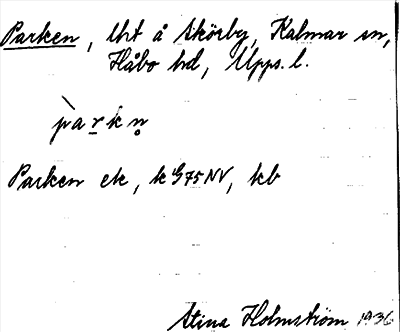 Parken, lht å Skörby, Kalmar sn,
Håbo hd, Upps. l.
pàrkn̥
Parken etc, k G75NV, kb
Stina Holmström 1936